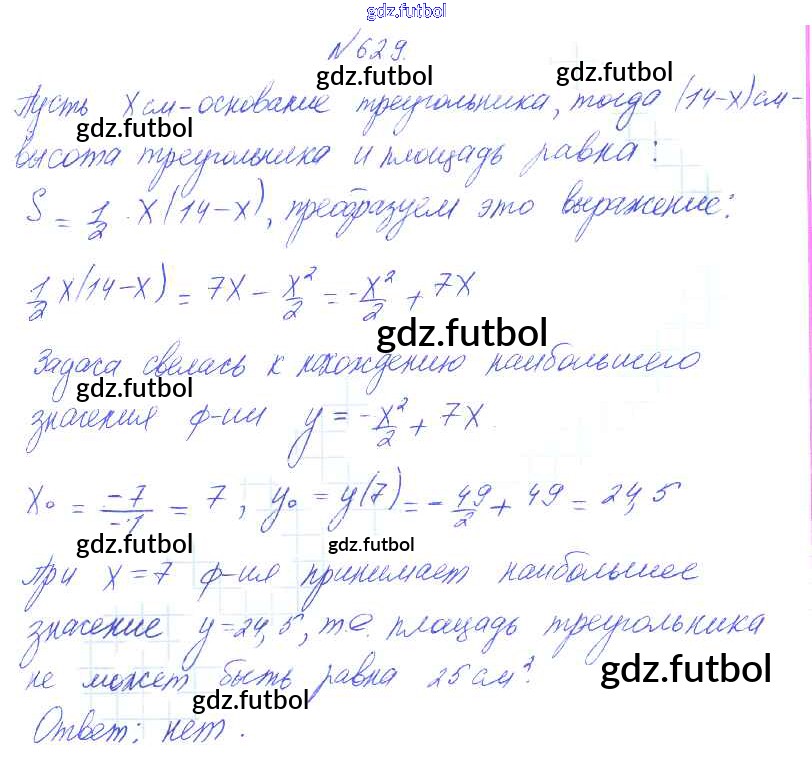 gdz.futbol
№629.
gdz.futbol gdz.futbol
Пусть x см - основание треугольника, тогда (14-x) см -
gdz.futbol
высота треугольника и площадь равна:
S = 1/2 · x(14-x), преобразуем это выражение:
1/2 x(14-x) = 7x - x²/2 = -x²/2 + 7x
gdz.futbol
Задача свелась к нахождению наибольшего
gdz.futbol
значения ф-ии y = -x²/2 + 7x.
x₀ = -7/-1 = 7, y₀ = y(7) = -49/2 + 49 = 24,5
gdz.futbol gdz.futbol
При x = 7 ф-ия принимает наибольшее
значение y = 24,5, т.е. площадь треугольника
не может быть равна 25 см².
gdz.futbol gdz.futbol
Ответ: нет.